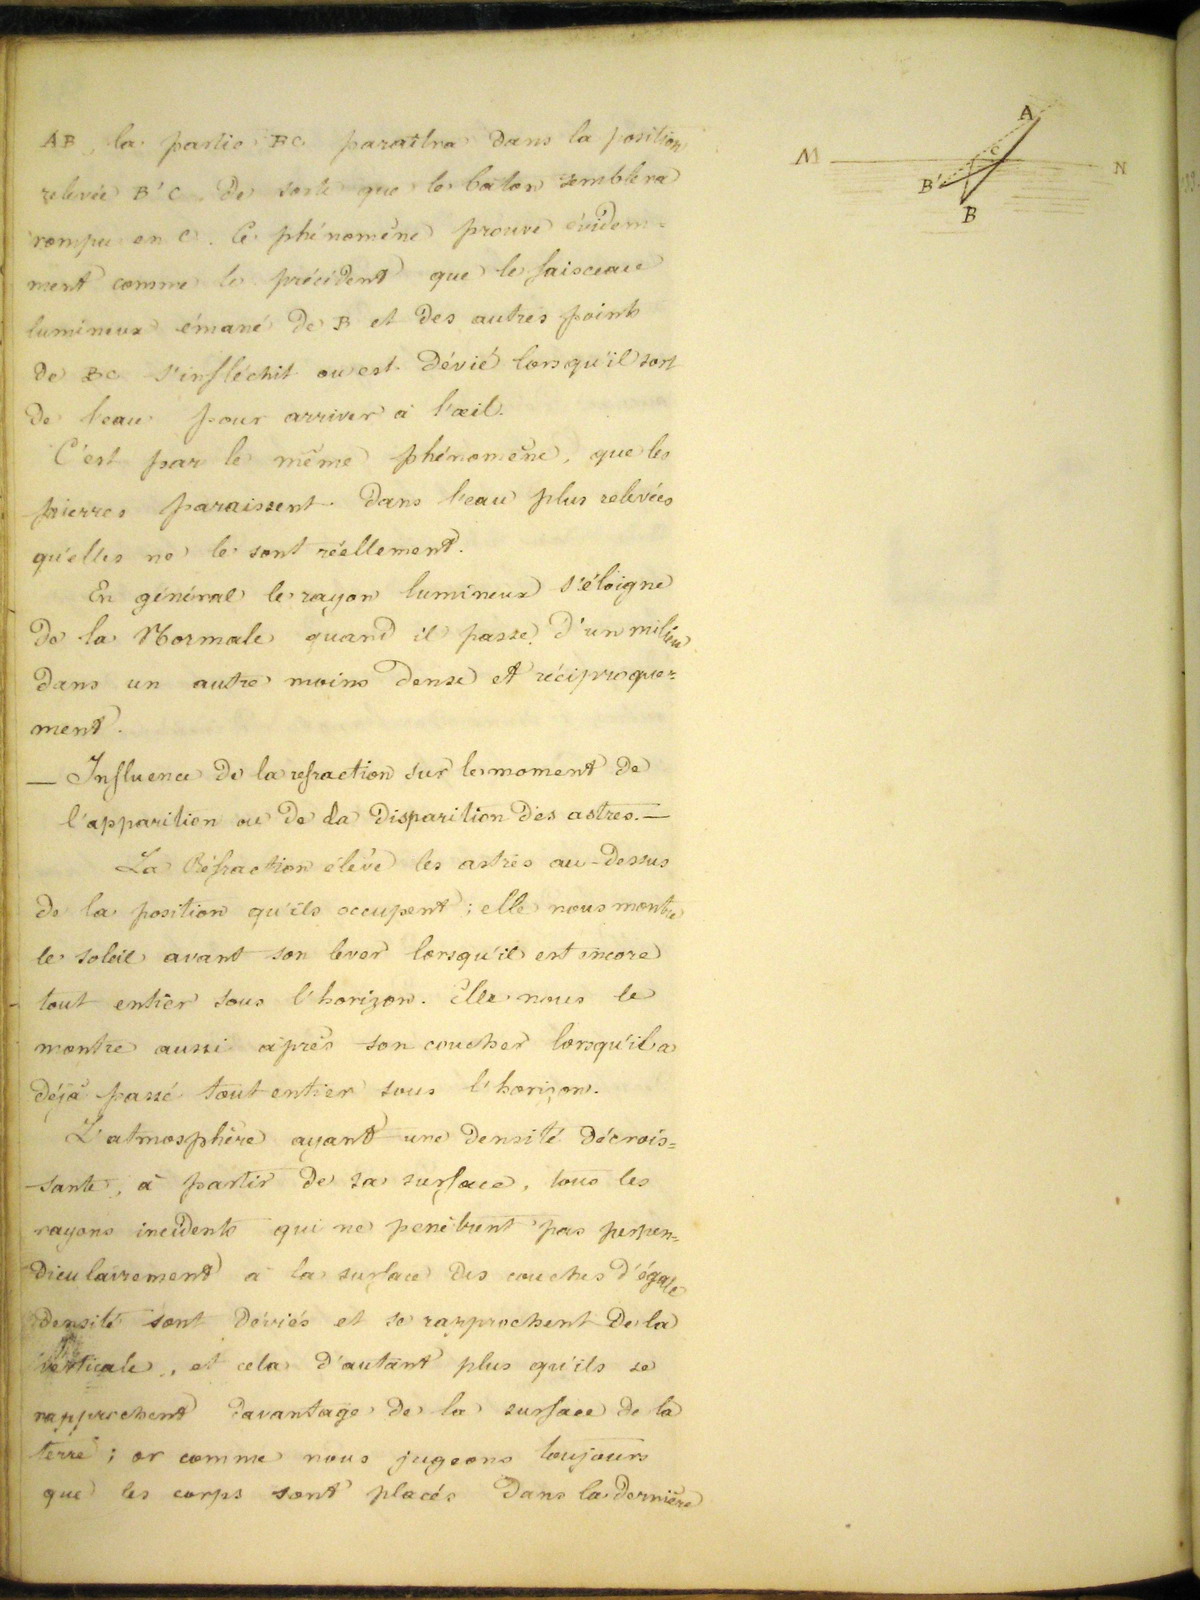 AB, la partie BC paraîtra dans la position
relevée B'C. De sorte que le bâton semblera
rompu en C. Ce phénomène prouve évidem=
ment comme le précédent que le faisceau
lumineux émané de B et des autres points
de BC s'infléchit ou est dévié lorsqu'il sort
de l'eau pour arriver à l'œil.
C'est par le même phénomène, que les
pierres paraissent dans l'eau plus relevées
qu'elles ne le sont réellement.
En général le rayon lumineux s'éloigne
de la Normale quand il passe d'un milieu
dans un autre moins dense et réciproque=
ment.
— Influence de la refraction sur le moment de
l'apparition ou de la disparition des astres. —
La Réfraction élève les astres au-dessus
de la position qu'ils occupent ; elle nous montre
le soleil avant son lever lorsqu'il est encore
tout entier sous l'horizon. Elle nous le
montre aussi après son coucher lorsqu'il a
déjà passé tout entier sous l'horizon.
L'atmosphère ayant une densité décrois=
sante, à partir de sa surface, tous les
rayons incidents qui ne pénètrent pas perpen=
diculairement à la surface des couches d'égale
densité sont déviés et se rapprochent de la
verticale, et cela d'autant plus qu'ils se
rapprochent davantage de la surface de la
terre ; or comme nous jugeons toujours
que les corps sont placés dans la dernière
A
M
C
N
B'
B